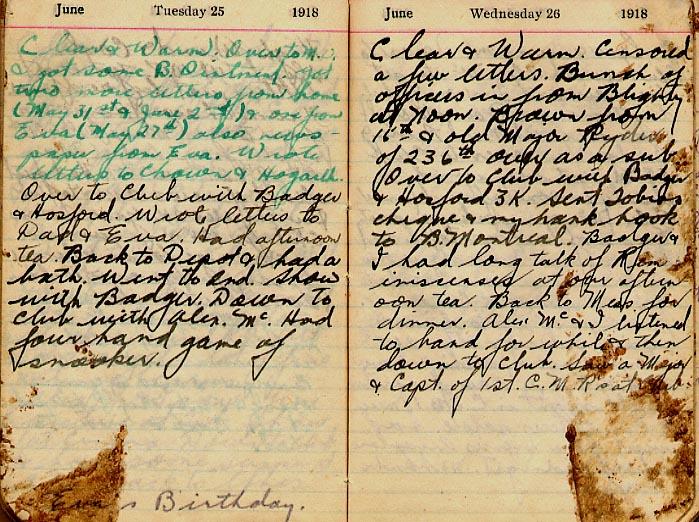 June Tuesday 25 1918
Clear & Warm. Over to M.
& got some B. Ointment. Got
two more letters from home
(May 31st & June 2nd) & one from
Eva (May 27th) also news-
paper from Eva. Wrote
letters to Chown & Hogarth.
Over to Club with Badger
& Hosford. Wrote letters to
Dad & Eva. Had afternoon
tea. Back to Depot & had a
bath. Went to 2nd. show
with Badger. Down to
Club with Alex. Mc. Had
four hand game of
snooker.
Eva's Birthday.
June Wednesday 26 1918
Clear & Warm. Censored
a few letters. Bunch of
officers in from Blighty
at Noon. Brown from
16th & old Major Ryder
of 236th over as a sub.
Over to Club with Badger
& Hosford 3K. Sent Tobin
cheque & my bank book
to B. Montreal. Badger &
I had long talk of Rem
iniscenses at our aftern
oon tea. Back to Mess for
dinner. Alex Mc & I listened
to band for while & then
down to Club. Saw a Major
& Capt. of 1st. C.M.R. at Club.